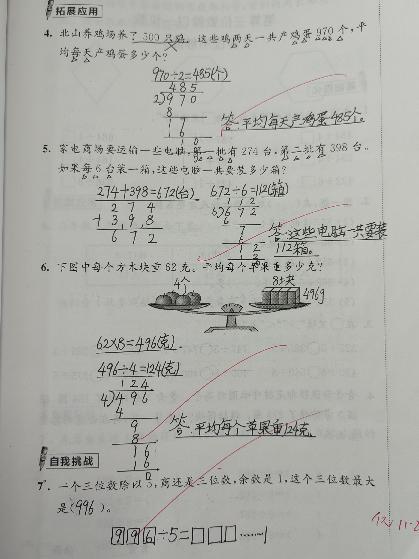 拓展应用
4. 北山养鸡场养了300只鸡，这些鸡两天一共产鸡蛋970个，平
均每天产鸡蛋多少个？
970÷2=485(个)
485
2)970
8
17
16
10
答:平均每天产鸡蛋485个。
5. 家电商场要运输一些电脑，第一批有274台，第二批有398台。
如果每6台装一箱，这些电脑一共要装多少箱？
274+398=672(台)
672÷6=112(箱)
274
+398
672
112
6)672
6
7
6
12
答:这些电脑一共需装
112箱。
6. 下图中每个方木块重62克，平均每个苹果重多少克？
4个
8块
496g
62×8=496(克)
496÷4=124(克)
124
4)496
4
9
8
16
16
0
答:平均每个苹果重124克。
自我挑战
7. 一个三位数除以5，商还是三位数，余数是1，这个三位数最大
是(996)。
996÷5=□□□……1